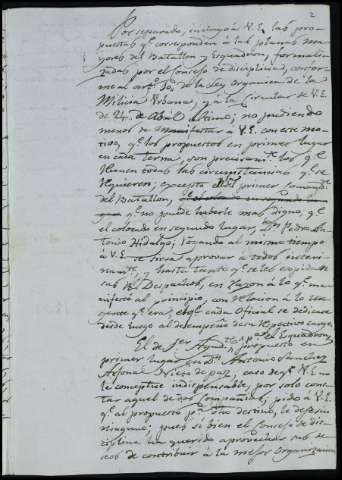 2
Por separado, incluyo á V.E. las pro-
puestas q.e corresponden á las planas ma-
yores del Batallon y Esquadron, formali-
zadas por el Consejo de disciplina confor-
me al art.o de la ley organica de la
Milicia Urbana, y á la Circular de V.E.
de 24 de Abril; no pudiendo
menos de Manifestar á V.E. con este mo-
tivo, q.e los propuestos en primer lugar
en cada terna, son los q.e
tienen todas las circunstancias q.e se
requieren; excepto el primer
del Batallon,
q.e no puede haberle mas digno, q.e
el colocado en segundo lugar, D.n Pedro An-
tonio Hidalgo; rogando al mismo tiempo
á V.E. se sirva aprovar á todos interi-
nam.te, y hasta tanto q.e se les expidan
sus Despachos, en razon á lo q.e ma-
nifiesto al principio, con relacion á lo ur-
gente q.e era, el q.e cada Oficial se dedicase
desde luego al desempeño de su respectivo cargo.
El de 1.er Ayud.te en Esquadron,
primer lugar D.n Antonio Sanchez
caso de q.e V.E. no
le conceptue indispensable, por solo cons-
tar aquel de dos Compañias, pido á V.E.
q.e al propuesto p.a
ninguno; pues si bien el Consejo de dis-
ciplina ha querido aprovechar sus de-
seos de contribuir á la mejor organizacion